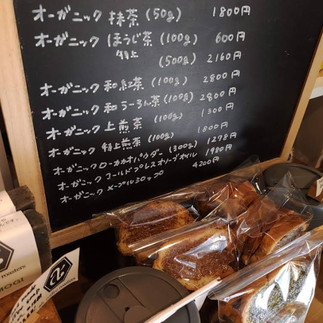 オーガニック 抹茶 (50g) 1800円
オーガニック ほうじ茶 (100g) 600円
特上 (500g) 2160円
オーガニック 和紅茶 (100g) 2800円
オーガニック 和うーろん茶(100g) 2800円
オーガニック 上煎茶 (100g) 1300円
オーガニック 特上煎茶 (100g) 1800円
オーガニックローカカオパウダー (300g) 1278円
オーガニックコールドプレスオリーブオイル 1980円
オーガニック メープルシロップ 4200円